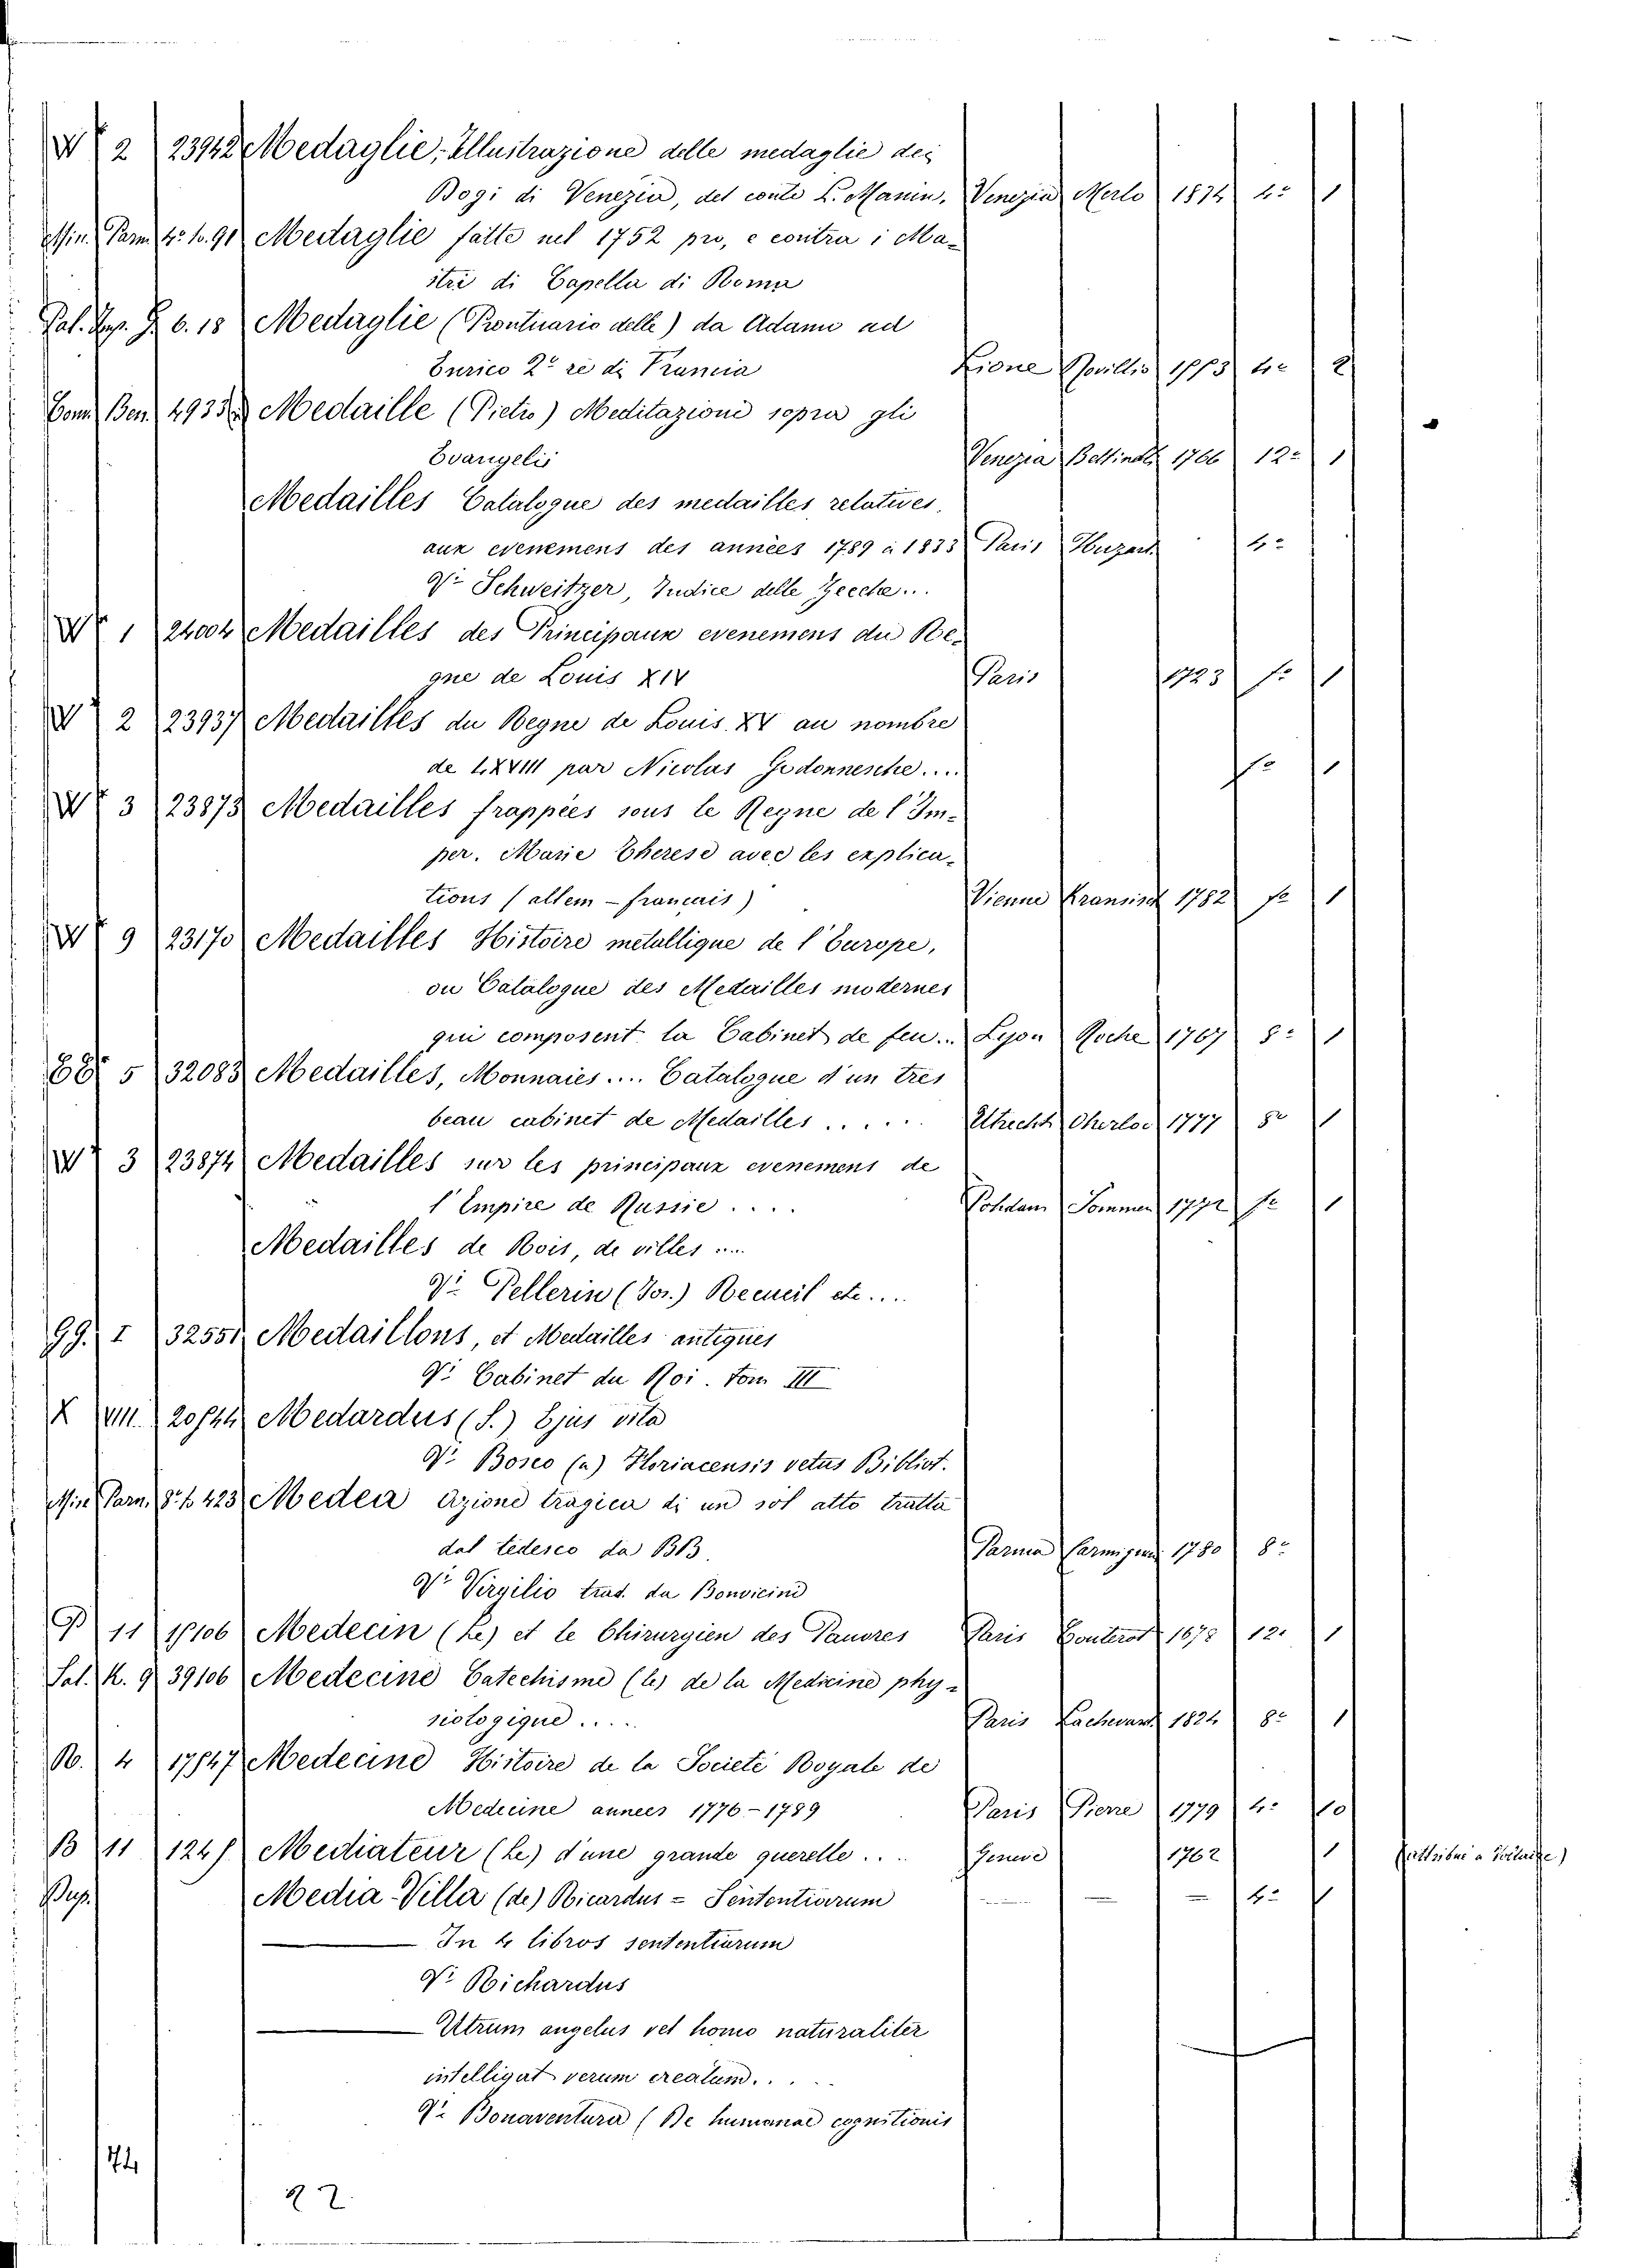 W 2 23942 Medaglie, Illustrazione delle medaglie dei
Dogi di Venezia, del conte L. Manin. Venezia Merlo 1834 4º 1
Min. Parm. 4º b. 91 Medaglie fatte nel 1752 pro, e contra i Ma-
stri di Capella di Roma
Pal. 6. 18 Medaglie (Prontuario delle) da Adamo ad
Enrico 2º re di Francia Lione Rovillio 4º 2
Conv. Ben. 4933 Medaille (Pietro) Meditazioni sopra gli
Evangelii Venezia Bettinelli 1766 12º 1
Medailles Catalogue des medailles relatives
aux evenemens des années 1789 à 1833 Paris Huzard 4º
Vº Schweitzer, Indice delle Zecche...
W 1 24004 Medailles des Principaux evenemens du Re-
gne de Louis XIV Paris 1723 fº 1
W 2 23937 Medailles du Regne de Louis XV au nombre
de LXVIII par Nicolas Godonnesche.... fº 1
W 3 23873 Medailles frappées sous le Regne de l'Im-
per. Marie Therese avec les explica-
tions (allem - français) Vienne 1782 fº 1
W 9 23170 Medailles Histoire metallique de l'Europe,
ou Catalogue des Medailles modernes
qui composent le Cabinet de feu... Lyon Roche 1767 8º 1
5 32083 Medailles, Monnaies.... Catalogue d'un tres
beau cabinet de Medailles...... Utrecht 1777 8º 1
W 3 23874 Medailles sur les principaux evenemens de
l'Empire de Russie.... Potsdam Sommer 1772 fº 1
Medailles de Rois, de villes....
Vº Pellerin (Jos.) Recueil etc....
99. I 32551 Medaillons, et Medailles antiques
Vº Cabinet du Roi. Tom III
X VIII. Medardus (S.) Ejus vita
Vº Bosco (a) Floriacensis vetus Bibliot.
Min. Parn. 8º b 423 Medea Azione tragica di un sol atto tratta
dal tedesco da BB. Parma 1780 8º
Vº Virgilio trad. da Bonvicini
P 11 Medecin (Le) et le Chirurgien des Pauvres Paris Couterot 1678 12º 1
Sal. K. 9 39106 Medecine Catechisme (le) de la Medicine phy-
siologique..... Paris 1824 8º 1
R. 4 Medecine Histoire de la Societé Royale de
Medecine années 1776-1789 Paris Pierre 1779 4º 10
B 11 Mediateur (Le) d'une grande querelle.... Geneve 1762 1 (attribué a Voltaire)
Dup. Media-Villa (de) Ricardus = Sententiarum — — 4º 1
— In 4 libros sententiarum
Vº Richardus
— Utrum angelus vel homo naturaliter
intelligat verum creatum.....
Vº Bonaventura (De humanae cognitionis
74
22